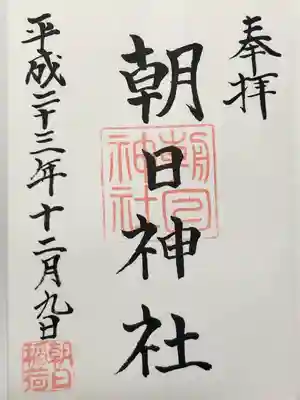 奉拝
朝日神社
朝日神社
平成二十三年十二月九日
朝日稲荷